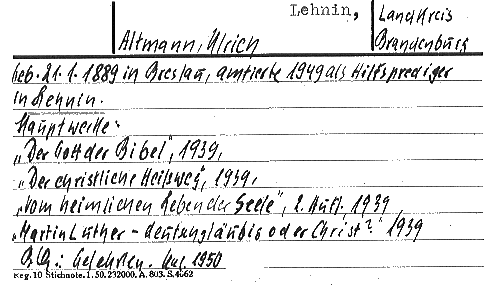 Lehnin,
Landkreis
Brandenburg
Altmann, Ulrich
geb. 21.1.1889 in Breslau, amtierte 1949 als Hilfsprediger
in Lehnin.
Hauptwerke:
„Der Gott der Bibel", 1939,
„Der christliche Heilsweg", 1939,
„Vom heimlichen Leben der Seele", 2. Aufl. 1939
„Martin Luther - deutschgläubig oder Christ?" 1939
Gelehrten. Kal. 1950
Reg. 10 Stichnote. 1. 50. 232000. A. 803. S. 4662